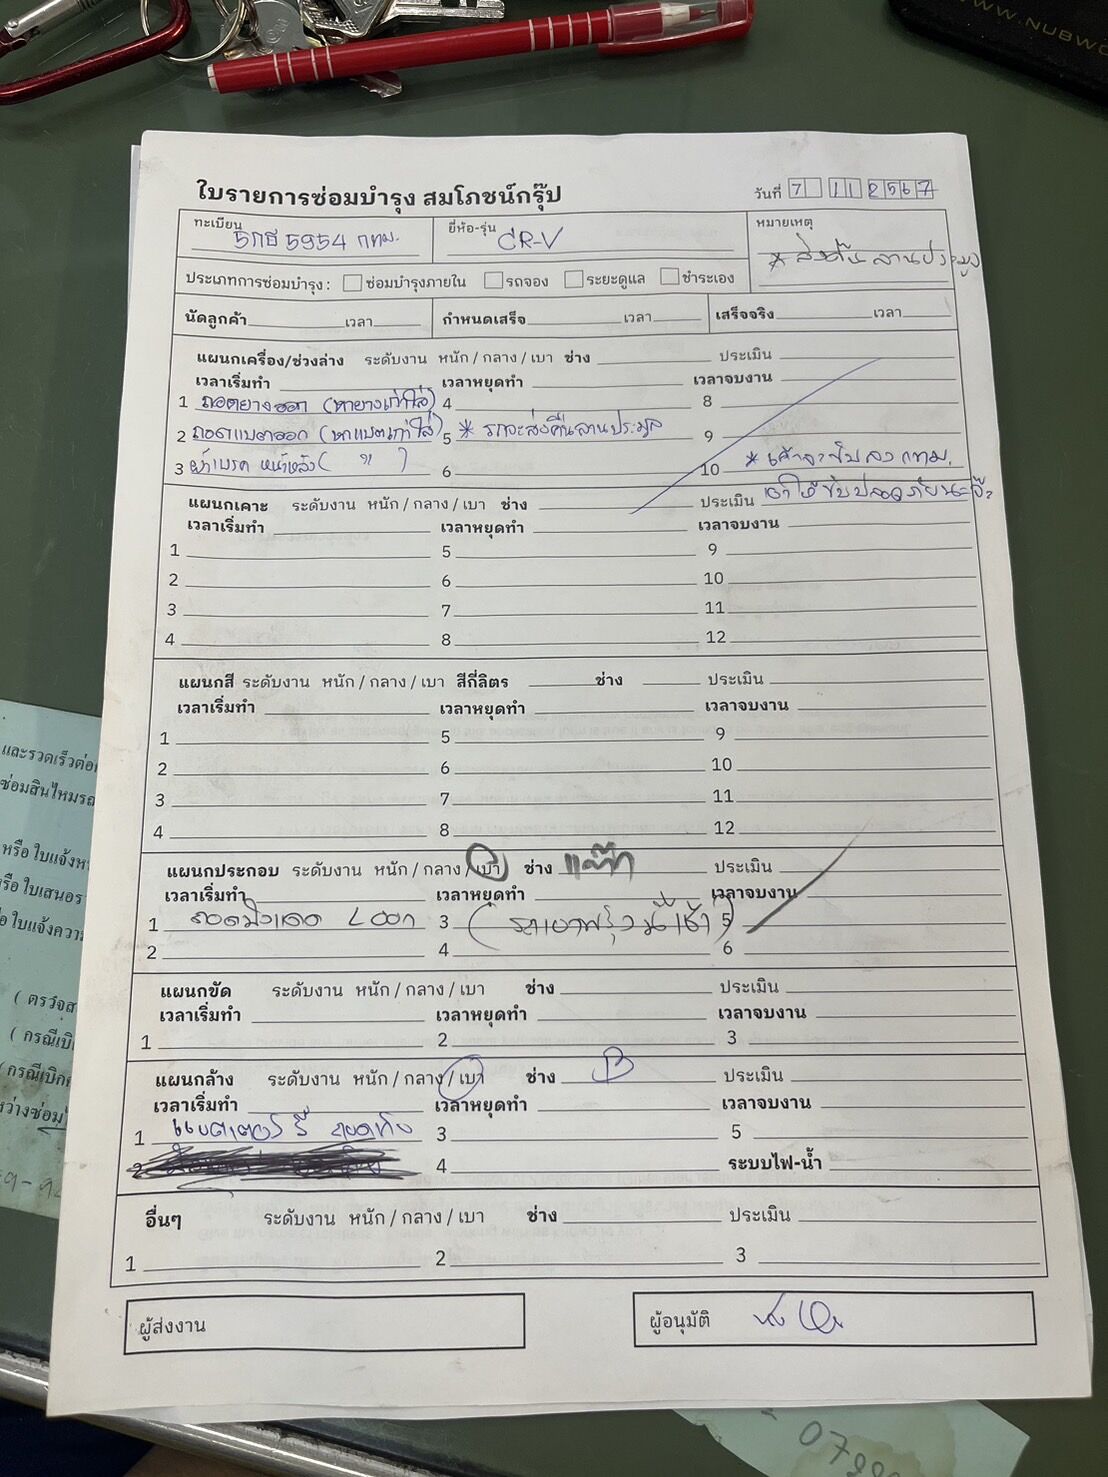 WWW.NUBWO
ใบรายการซ่อมบำรุง สมโภชน์กรุ๊ป
วันที่ 7 11 2567
ทะเบียน 5กธ 5954 กทม.
ยี่ห้อ-รุ่น CR-V
หมายเหตุ
* ส่งคืน ลานประมูล
ประเภทการซ่อมบำรุง : ซ่อมบำรุงภายใน รถจอง ระยะดูแล ชำระเอง
นัดลูกค้า เวลา กำหนดเสร็จ เวลา เสร็จจริง เวลา
แผนกเครื่อง/ช่วงล่าง ระดับงาน หนัก / กลาง / เบา ช่าง ประเมิน
เวลาเริ่มทำ เวลาหยุดทำ เวลาจบงาน
1 ถอดยางออก (หายางเก่าใส่) 4 8
2 ถอดแบตออก (หาแบตเก่าใส่) 5 * รถจะส่งคืนลานประมูล 9
3 ผ้าเบรค หน้าหลัง ( " ) 6 10 * เค้าจะขับลง กทม.
เอาให้ขับปลอดภัยนะ
แผนกเคาะ ระดับงาน หนัก / กลาง / เบา ช่าง ประเมิน
เวลาเริ่มทำ เวลาหยุดทำ เวลาจบงาน
1 5 9
2 6 10
3 7 11
4 8 12
แผนกสี ระดับงาน หนัก / กลาง / เบา สีกี่ลิตร ช่าง ประเมิน
เวลาเริ่มทำ เวลาหยุดทำ เวลาจบงาน
1 5 9
2 6 10
3 7 11
4 8 12
แผนกประกอบ ระดับงาน หนัก / กลาง / เบา ช่าง ประเมิน
เวลาเริ่มทำ เวลาหยุดทำ เวลาจบงาน
1 ถอดมิเตอร์ ออก 3 (รถเอาพรุ่งนี้เช้า) 5
2 4 6
แผนกขัด ระดับงาน หนัก / กลาง / เบา ช่าง ประเมิน
เวลาเริ่มทำ เวลาหยุดทำ เวลาจบงาน
1 2 3
แผนกล้าง ระดับงาน หนัก / กลาง / เบา ช่าง B ประเมิน
เวลาเริ่มทำ เวลาหยุดทำ เวลาจบงาน
1 แบตเตอรี่ 3 5
2 4 ระบบไฟ-น้ำ
อื่นๆ ระดับงาน หนัก / กลาง / เบา ช่าง ประเมิน
1 2 3
ผู้ส่งงาน
ผู้อนุมัติ
และรวดเร็วต่อ
ซ่อมสินไหมรถ
หรือ ใบแจ้งห
รือ ใบเสนอร
อ ใบแจ้งความ
( ตรวจส
( กรณีเบิ
(กรณีเบิก
หว่างซ่อม